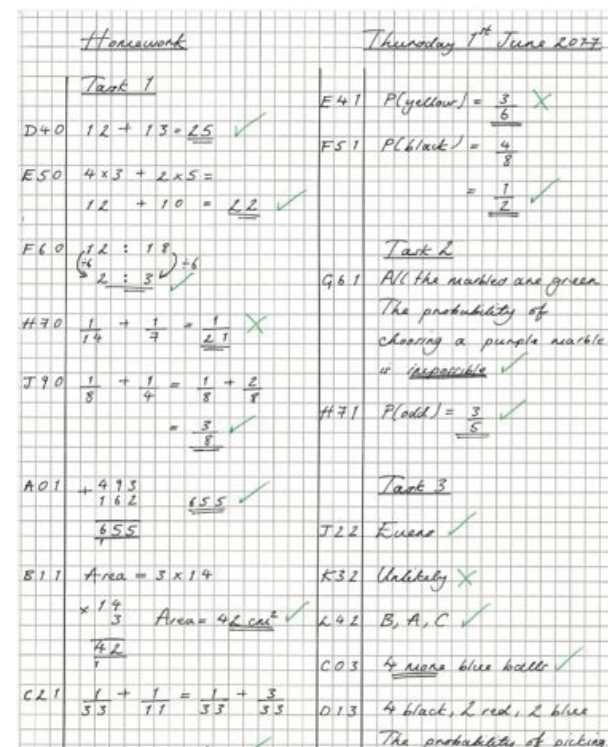 Homework
Thursday 1st June 2017
Task 1
D40 12 + 13 = 25 ✓
E50 4 × 3 + 2 × 5 =
12 + 10 = 22 ✓
F60 12 : 18
÷6 ÷6
2 : 3 ✓
H70 1/14 + 1/7 = 1/21 ✗
J90 1/8 + 1/4 = 1/8 + 2/8
= 3/8 ✓
A01 + 493
162 655 ✓
655
1
B11 Area = 3 × 14
× 14
3 Area = 42 cm² ✓
42
1
C21 1/33 + 1/11 = 1/33 + 3/33
✓
E41 P(yellow) = 3/6 ✗
F51 P(black) = 4/8
= 1/2 ✓
Task 2
G61 All the marbled are green
The probability of
choosing a purple marble
is impossible ✓
H71 P(odd) = 3/5 ✓
Task 3
J22 Evens ✓
K32 Unlikely ✗
L42 B, A, C ✓
C03 4 more blue balls ✓
D13 4 black, 2 red, 2 blue
The probability of picking